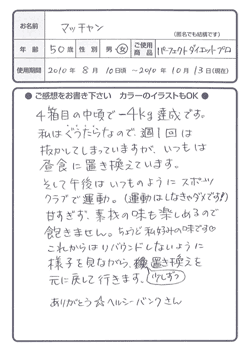 お名前 マッチャン
(匿名でも結構です)
年齢 50歳 性別 男・女 ご使用商品 パーフェクトダイエットプロ
使用期間 2010年8月10日頃〜2010年10月13日(現在)
●ご感想をお書き下さい カラーのイラストもOK
4箱目の中頃で−4kg達成です。
私はぐうたらなので、週1回は
抜かしてしまっていますが、いつもは
昼食に置き換えています。
そして午後はいつものようにスポーツ
クラブで運動。(運動はしなきゃダメです!)
甘すぎず、素材の味も楽しめるので
飽きません。ちょうど私好みの味です♡
これからはリバウンドしないように
様子を見ながら、置き換えを
元に戻して行きます。少しずつ
ありがとう☆ヘルシーバンクさん